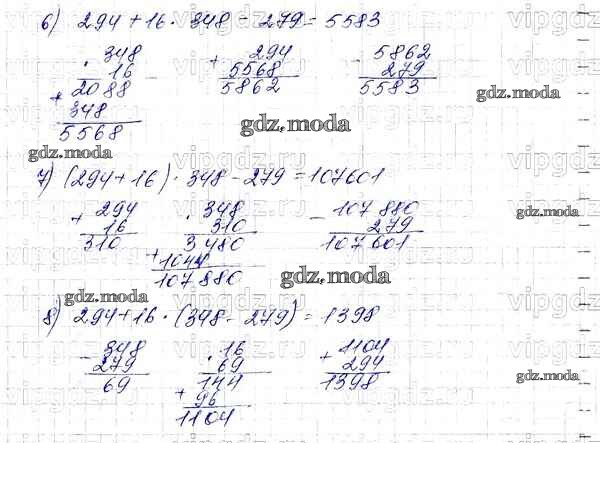 6) 294 + 16 · 348 - 279 = 5583
· 348
16
+ 2088
348
5568
+ 294
5568
5862
- 5862
279
5583
gdz.moda
gdz.moda
gdz.moda
7) (294 + 16) · 348 - 279 = 107601
+ 294
16
310
· 348
310
3480
+ 1044
107880
- 107880
279
107601
gdz.moda
gdz.moda
gdz.moda
8) 294 + 16 · (348 - 279) = 1398
- 348
279
69
· 16
69
144
+ 96
1104
+ 1104
294
1398
gdz.moda